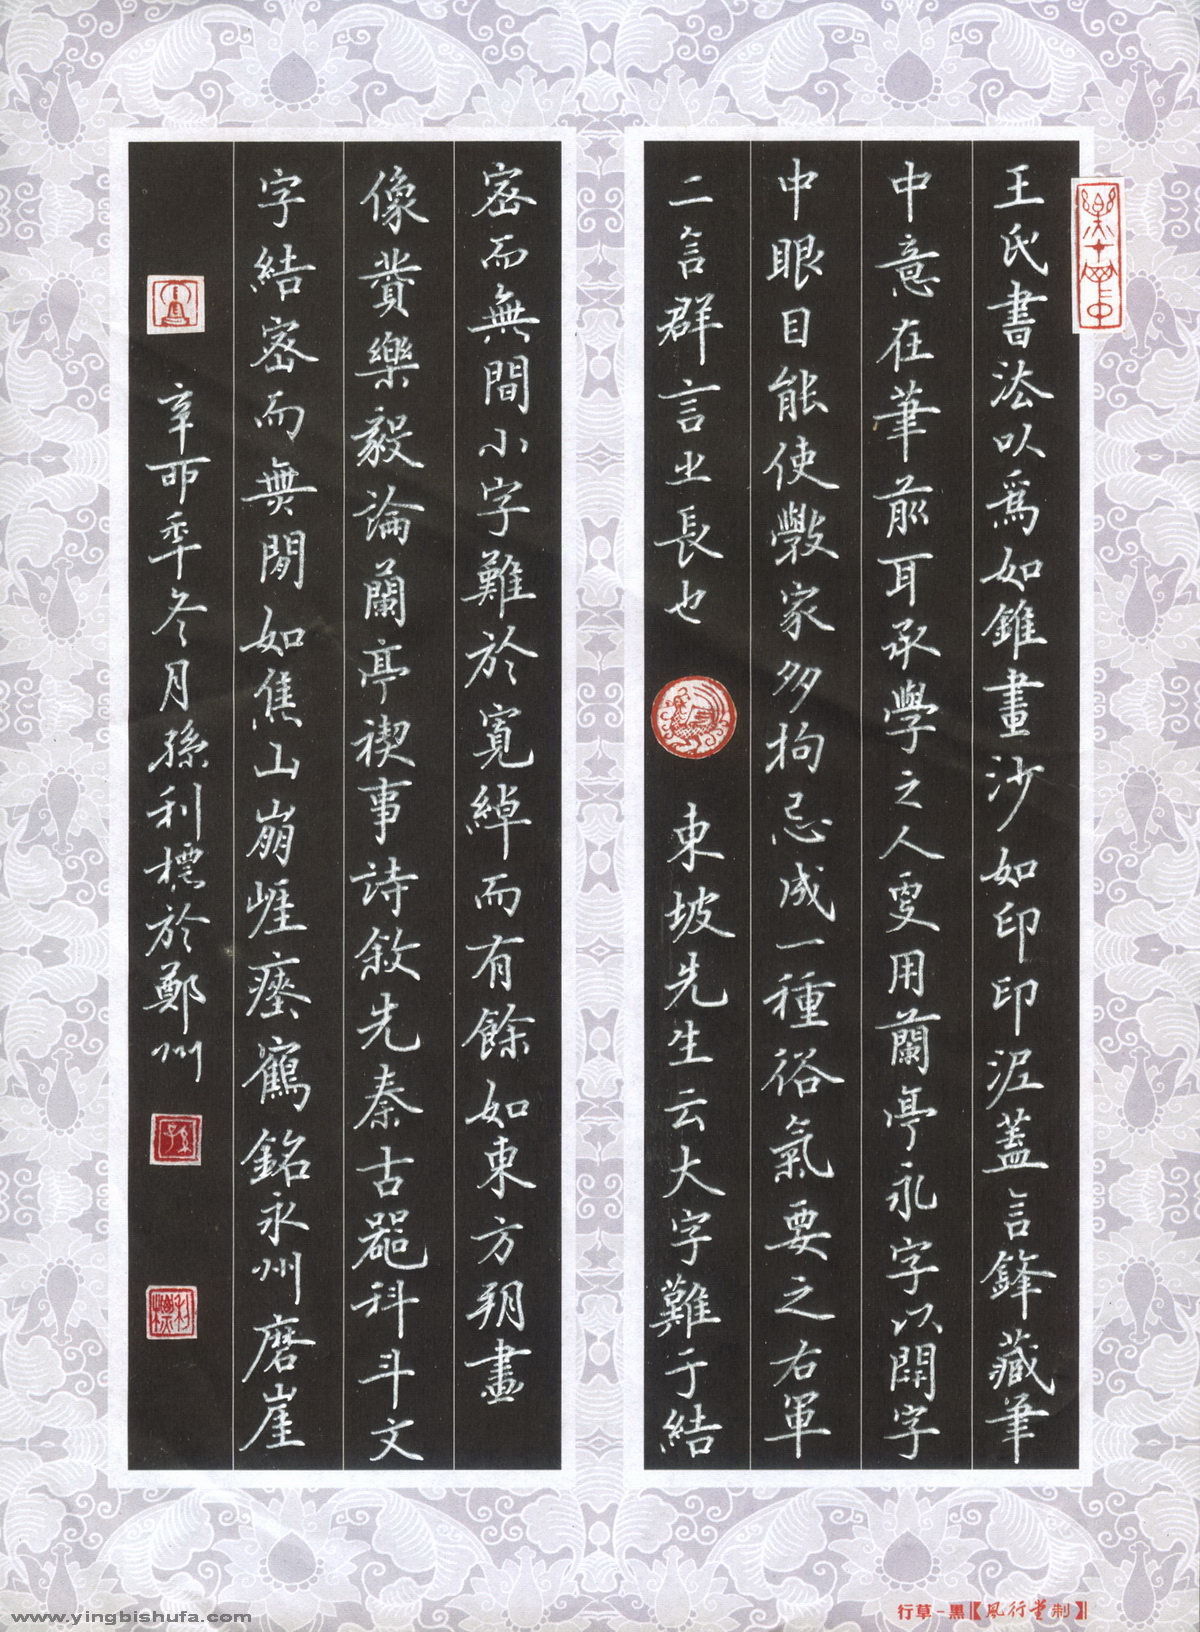 王氏書法以爲如錐畫沙如印印泥蓋言鋒藏筆
中意在筆前耳承學之人更用蘭亭永字以開字
中眼目能使學家多拘忌成一種俗氣要之右軍
二言群言之長也 東坡先生云大字難于結
密而無間小字難於寬綽而有餘如東方朔畫
像贊樂毅論蘭亭禊事詩敘先秦古器科斗文
字結密而無間如焦山崩崖瘞鶴銘永州磨崖
辛卯年冬月孫利標於鄭州
孫
利標
www.yingbishufa.com
行草-黑【風行堂制】